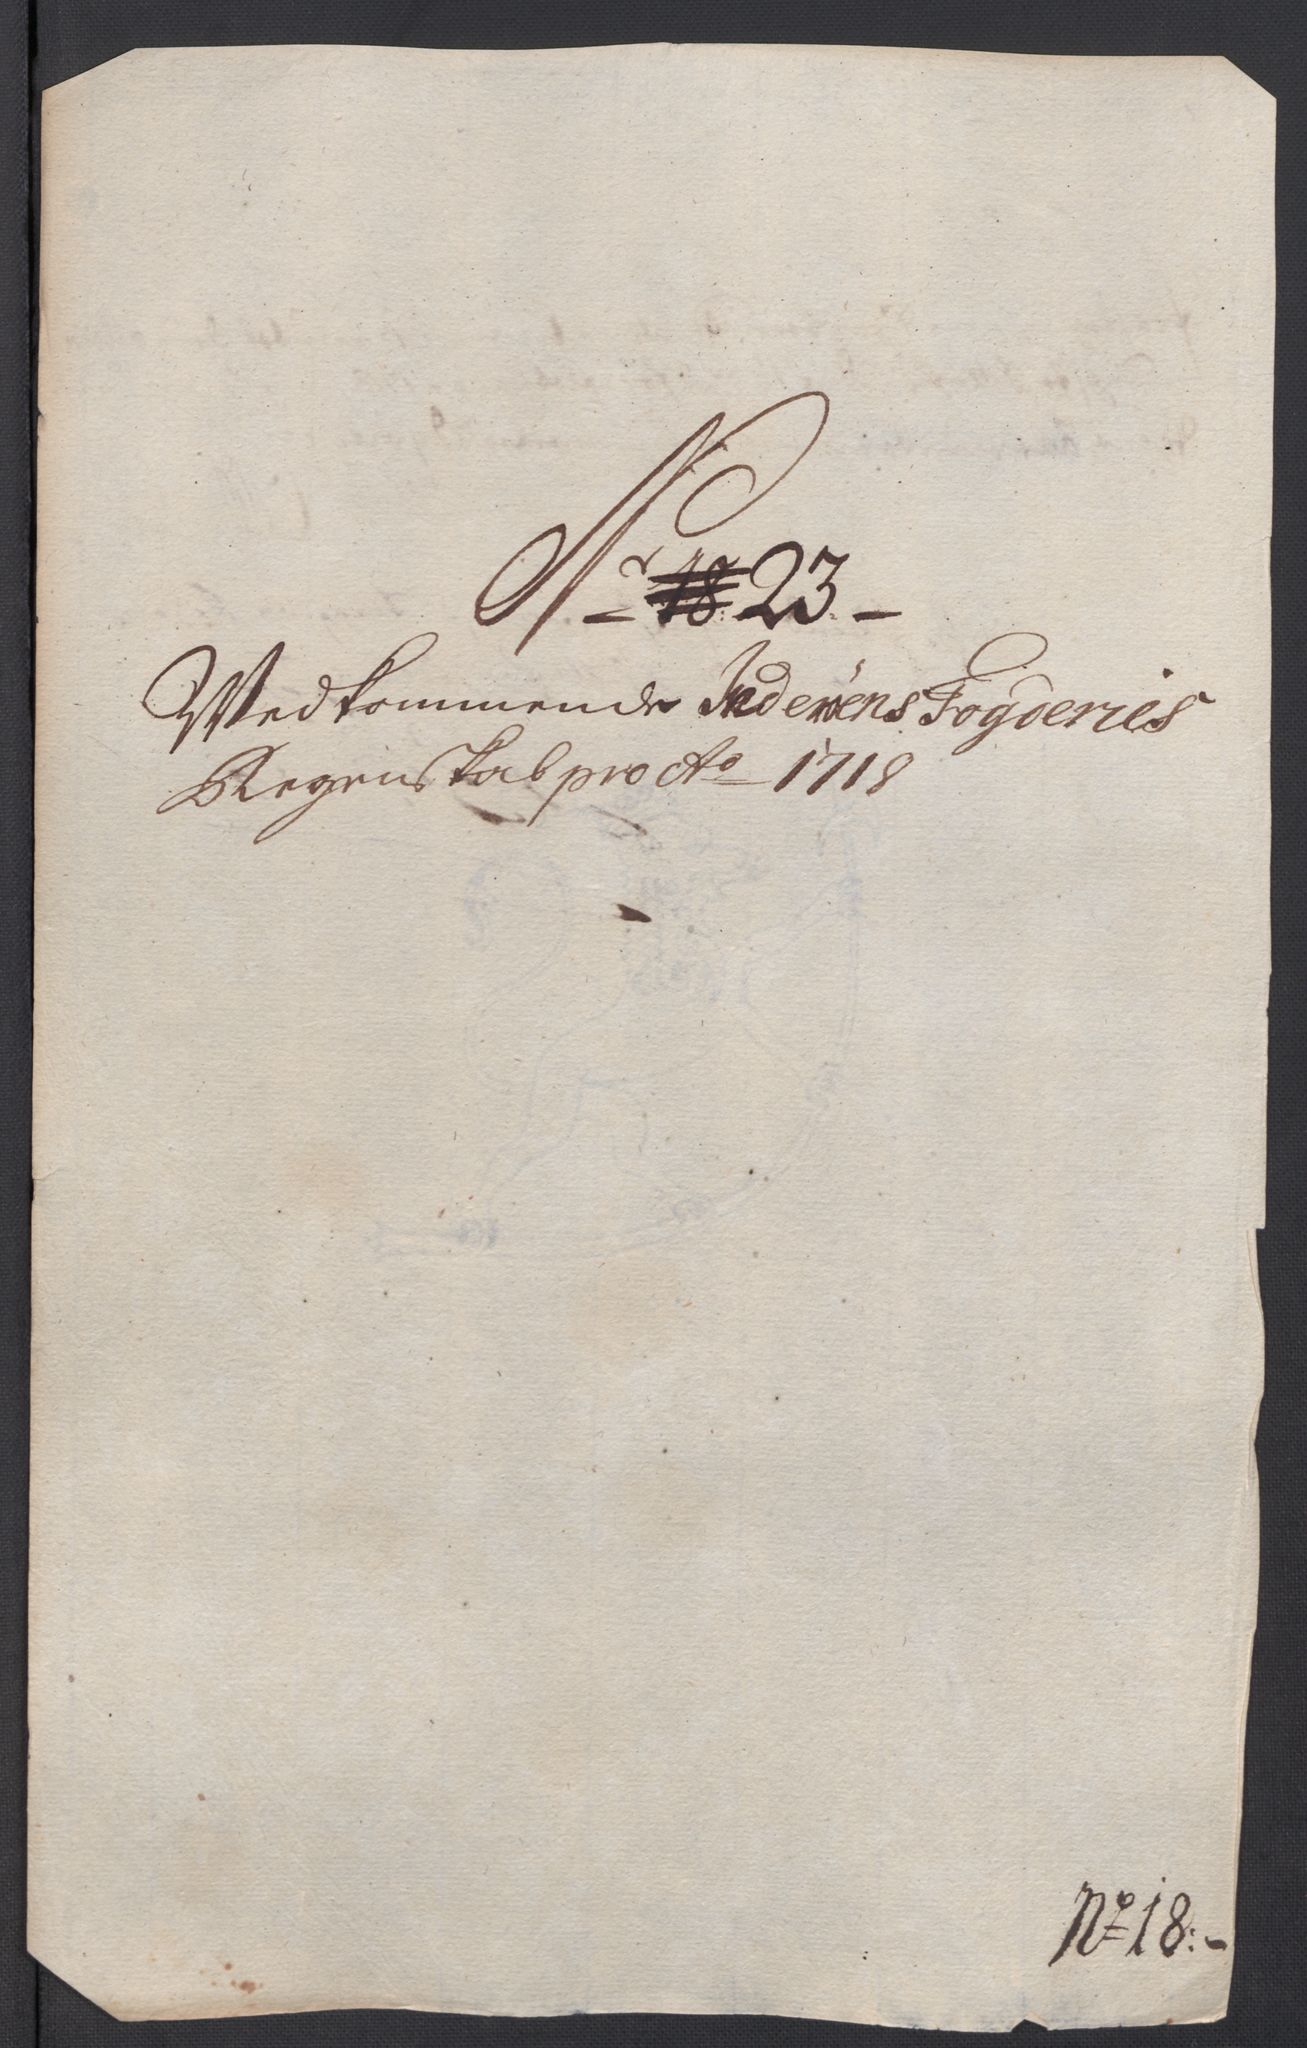 Nr 18: 23.
Wedkommende Inderöens Fogderies
Regenskab pro Ao 1718
No 18: